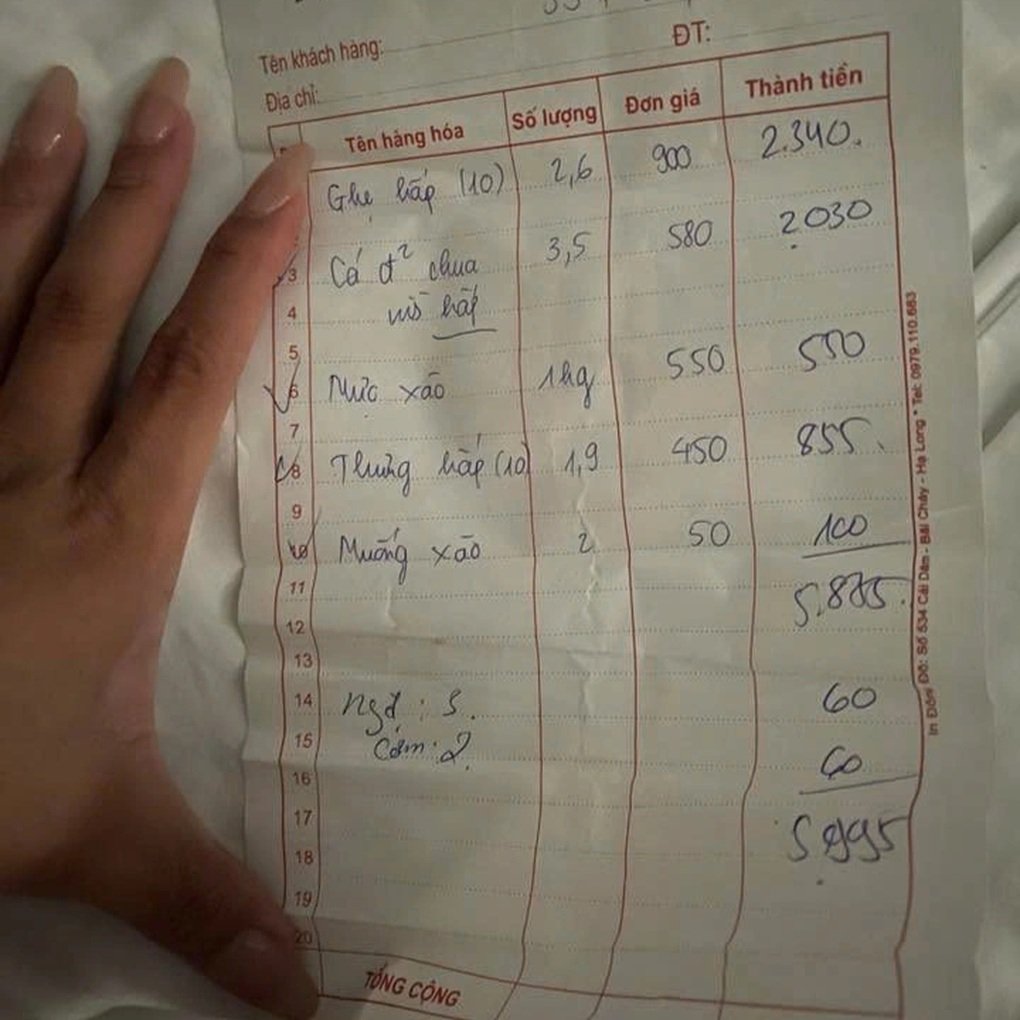 Tên khách hàng:
ĐT:
Địa chỉ:
Tên hàng hóa Số lượng Đơn giá Thành tiền
Ghẹ hấp (10) 2,6 900 2.340.
3 Cá đ² chua 3,5 580 2.030
4 vs hấp
5
6 Mực xào 1kg 550 550
7
8 Thưng hấp (10) 1,9 450 855.
9
10 Muống xào 2 50 100
11 5.875.
12
13
14 Ngđ : 5. 60
15 Cơm : 2. 60
16
17 5.995
18
19
20
TỔNG CỘNG
In Đông Đô: Số 534 Cái Dăm - Bãi Cháy - Hạ Long * Tel: 0979.110.683